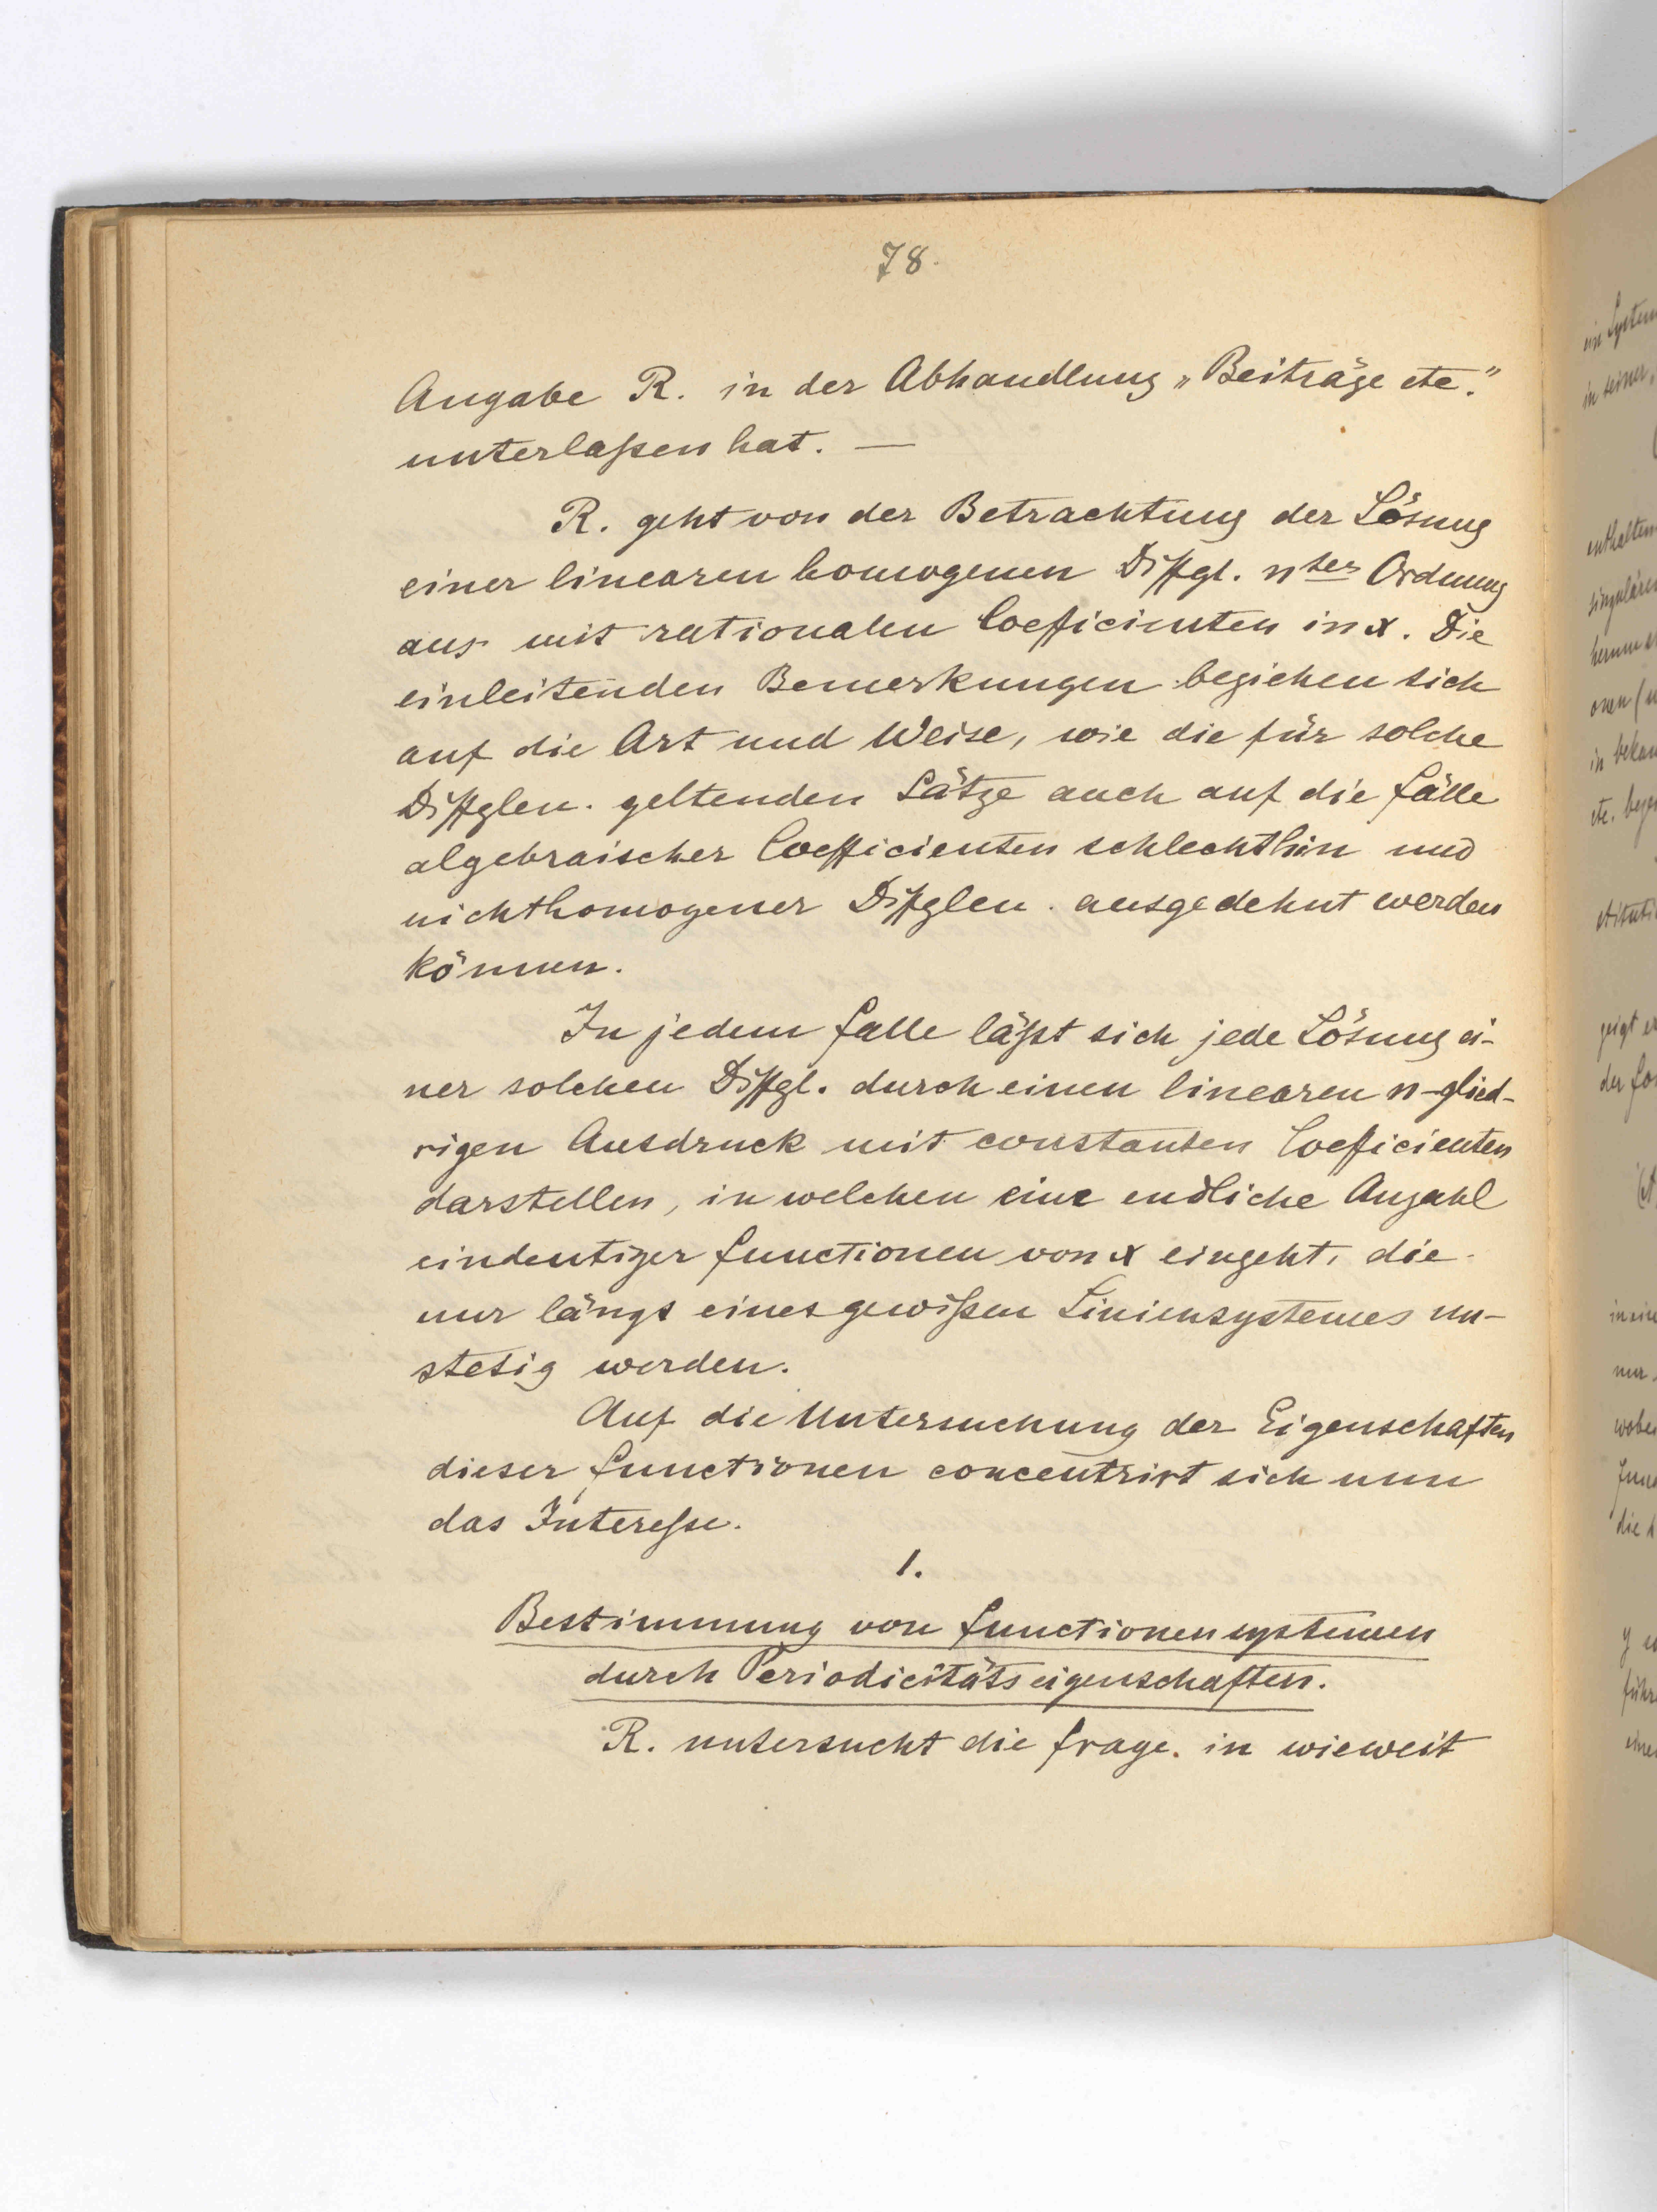 78.
Angabe R. in der Abhandlung „Beiträge etc."
unterlaßen hat. —
R. geht von der Betrachtung der Lösung
einer linearen homogenen Diffgl. nter Ordnung
aus mit rationalen Coefficienten in x. Die
einleitenden Bemerkungen beziehen sich
auf die Art und Weise, wie die für solche
Diffglen. geltenden Sätze auch auf die Fälle
algebraischer Coefficienten schlechthin und
nichthomogener Diffglen. ausgedehnt werden
können.
In jedem Falle läßt sich jede Lösung ei-
ner solchen Diffgl. durch einen linearen n-glied-
rigen Ausdruck mit constanten Coefficienten
darstellen, in welchen eine endliche Anzahl
eindeutiger Functionen von x eingeht, die
nur längs eines gewißen Liniensystemes un-
stetig werden.
Auf die Untersuchung der Eigenschaften
dieser Functionen concentrirt sich nun
das Interesse.
1.
Bestimmung von Functionensystemen
durch Periodicitätseigenschaften.
R. untersucht die Frage. in wieweit
ein System
in seiner,
enthalten
singulären
in bekan
etc.
zeigt er
nur
die